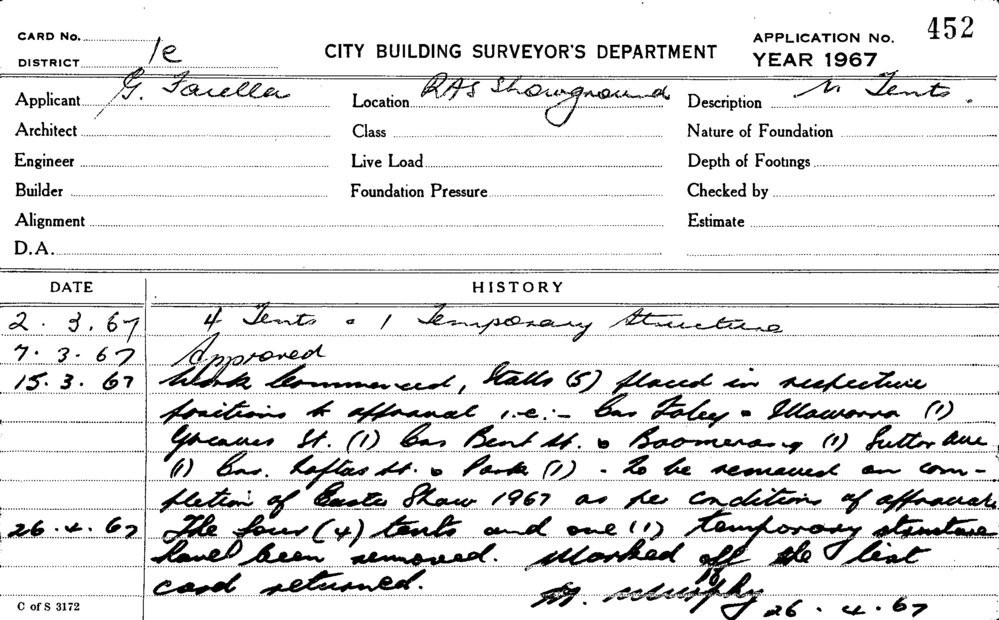 CARD No.
DISTRICT 1e
CITY BUILDING SURVEYOR'S DEPARTMENT
APPLICATION No. 452
YEAR 1967
Applicant G. Farella Location RAS Showground Description Tents.
Architect Class Nature of Foundation
Engineer Live Load Depth of Footings
Builder Foundation Pressure Checked by
Alignment Estimate
D.A.
DATE HISTORY
2. 3. 67 4 Tents & 1 Temporary Structure
7. 3. 67 Approved
15. 3. 67 Work Commenced, Stalls (5) placed in respective
positions to approval i.e:- Cnr Foley & Illawarra (1)
Greaves St. (1) Cnr Bent St. & Boomerang (1) Suttor Ave
(1) Cnr. Loftus St. & Park (1) - To be removed on com-
pletion of Easter Show 1967 as per conditions of approval.
26. 4. 67 The four (4) tents and one (1) temporary structure
have been removed. Marked off the list
card returned.
M. Murphy 26. 4. 67
C of S 3172